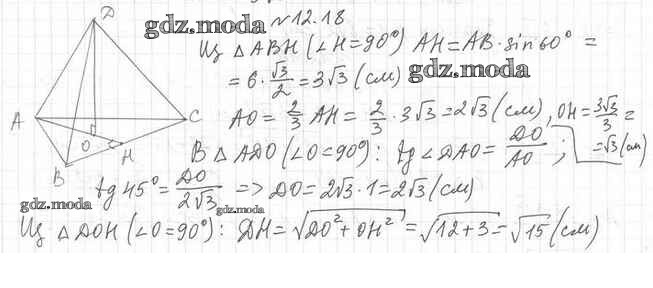 D
A
B
C
O
H
gdz.moda №12.18
Из △ABH (∠H=90°) AH=AB·sin60°=
=6·√3/2=3√3 (см) gdz.moda
AO=2/3 AH=2/3·3√3=2√3 (см), OH=3√3/3=
=√3 (см)
В △ADO (∠O=90°): tg∠DAO=DO/AO;
tg45°=DO/2√3 => DO=2√3·1=2√3 (см)
gdz.moda gdz.moda
Из △DOH (∠O=90°): DH=√DO²+OH²=√12+3=√15 (см)